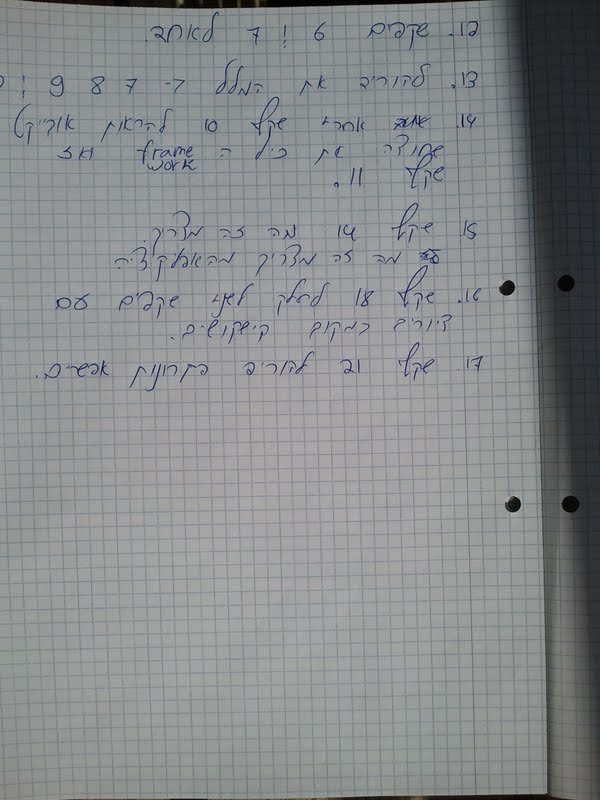 12. שקפים 6 ו 7 לאחד.
13. להוריד את המלל ב- 7 8 9 ו
14. אחרי שקף 10 להראות אובייקט
שמוצה את כיל ה frame work ואז
שקף 11.
15 שקף 14 מה זה מצריך.
מה זה מצריך מהאפליקציה
16. שקף 18 לחלק לשני שקפים עם
ציורים במקום קישקושים.
17 שקף 21 להוריד פתרונות אפשריים.